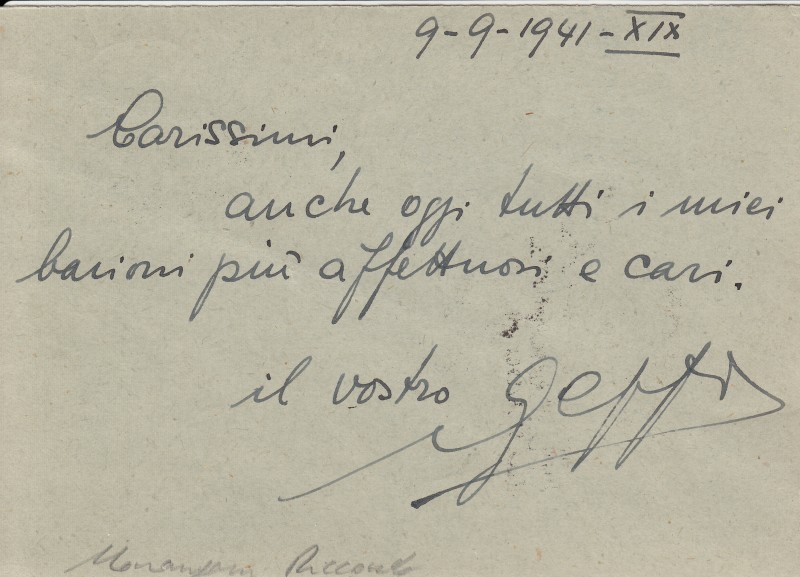 9-9-1941-XIX
Carissimi,
anche oggi tutti i miei
bacioni più affettuosi e cari.
il vostro Geppi